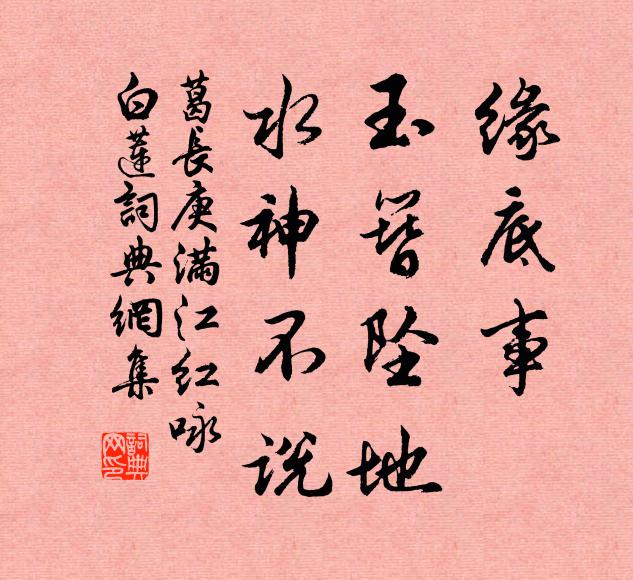 緣底事
玉簪墜地
水神不説
葛長庚滿江紅咏
白蓮詞典網集
詞典
网印